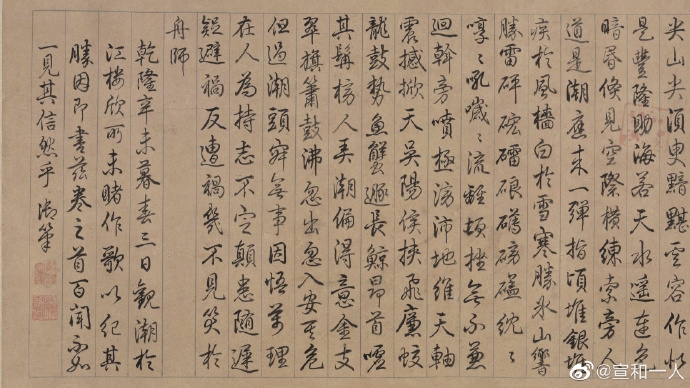 尖山尖須臾黯黮雲容作
是豐隆助海若天水遙連
暗昬倐見空際橫練索旁人
道是潮應來一彈指頃堆銀堆
疾於風檣白於雪寒勝冰山響
勝雷砰硡礌硠礚磅磕
〻吼噦〻流離頓挫無不兼
迴斡旁噴極滂沛地維天軸
震撼掀天吳陽侯挾飛廉蛟
龍鼓勢魚蟹遯長鯨昂首噓
其髯榜人弄潮偏得意金支
翠旗簫鼓沸忽出忽入安其危
但過潮頭寂無事因悟萬理
在人為持志不定顛患隨遲
疑避禍反遭禍幾不見笑於
舟師
乾隆辛未暮春三日觀潮於
江樓欣所未睹作歌以紀其
勝因即書茲卷之首百聞不如
一見其信然乎御筆
@宣和一人